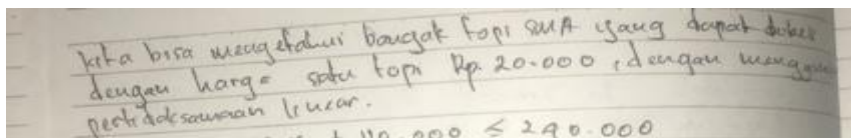 kita bisa mengetahui banyak topi SMA yang dapat dibeli
dengan harga satu topi Rp. 20.000, dengan
pertidaksamaan linear.
.000 ≤ 240.000